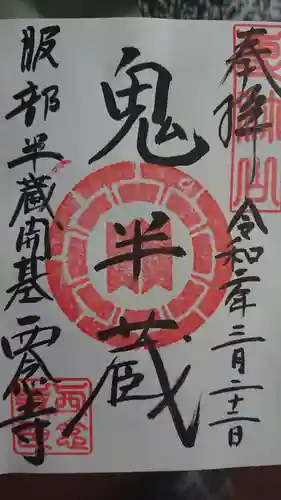 奉拝
令和二年三月二十二日
鬼半蔵
服部半蔵開基
西念寺